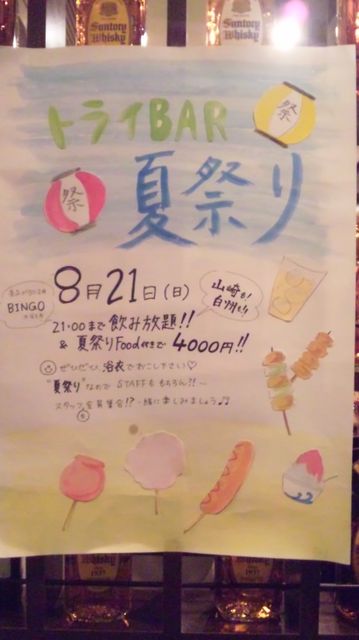 Suntory
Whisky
Suntory
Whisky
トライBAR
祭
祭
夏祭り
8月21日(日)
BINGO
21:00まで飲み放題!!
山崎も!
白州も!!
& 夏祭りFood付きで 4000円!!
ぜひぜひ、浴衣でおこし下さい♡
"夏祭り"なので STAFFも もちろん!!…
スタッフ全員集合!? 一緒に楽しみましょう♫